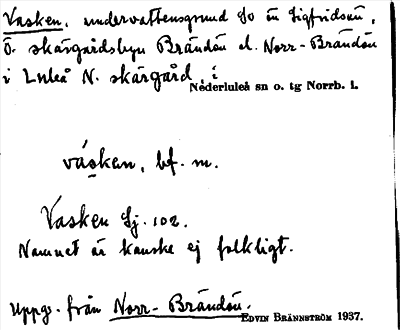 Vasken, undervattensgrund So ön Sigfridsön,
Ö. skärgårdsbyn Brändön el. Norr-Brändön
i Luleå N. skärgård, i
Nederluleå sn o. tg Norrb. l.
vásken, bf. m.
Vasken Sj. 102.
Namnet är kanske ej folkligt.
Uppg. från Norr-Brändön.
EDVIN BRÄNNSTRÖM 1937.